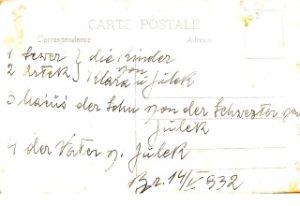 CARTE POSTALE
Correspondence
Adresse
1 Sewer } die Kinder
2 Artek } von Klara u Julek
3 Mariúś der Sohn von der Schwester von Julek
4 der Vater v. Julek
Br. 14/V 932